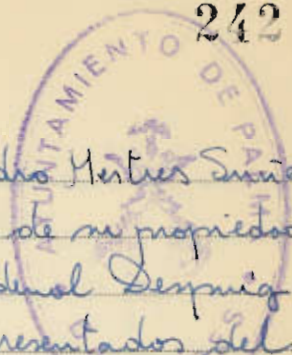 242
AYUNTAMIENTO DE PALMA
dro Mestres Suñe
de su propiedad
denal Despuig
resentados del